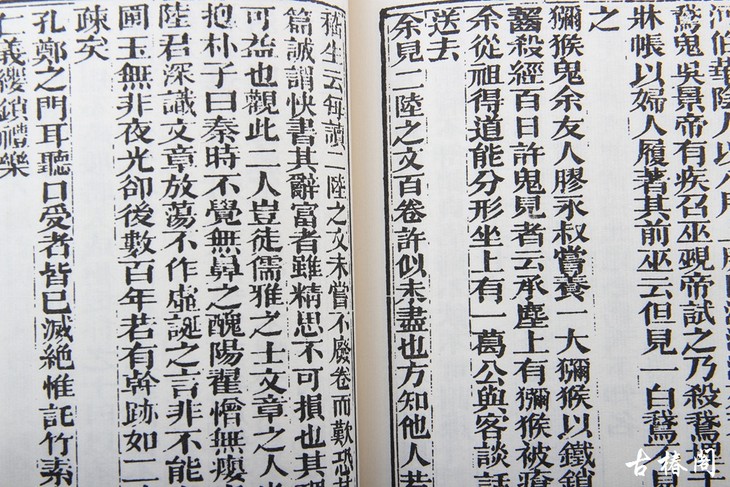 河伯華陰人以八月
鵞鬼吳景帝有疾召巫覡帝試之乃殺鵞埋
牀帳以婦人履著其前巫云但見一白鵞
之
獼猴鬼余友人膠永叔嘗養一大獼猴以鐵鎖
齧殺經百日許鬼見者云承塵上有獼猴被瘡
余從祖得道能分形坐上有一萬公與客談話
送去
余見二陸之文百卷許似未盡也方知他人若
嵇生云每讀二陸之文未嘗不廢卷而歎恐其
篇誠謂快書其辭富者雖精思不可損也其
可益也觀此二人豈徒儒雅之士文章之人
抱朴子曰秦時不覺無鼻之醜陽翟憎無癭
陸君深識文章放蕩不作虛誕之言非不能
圃玉無非夜光卻後數百年若有幹跡如二
疎矣
孔鄭之門耳聽口愛者皆已滅絕惟託竹素
仁義纓鎖禮樂
古椿閣